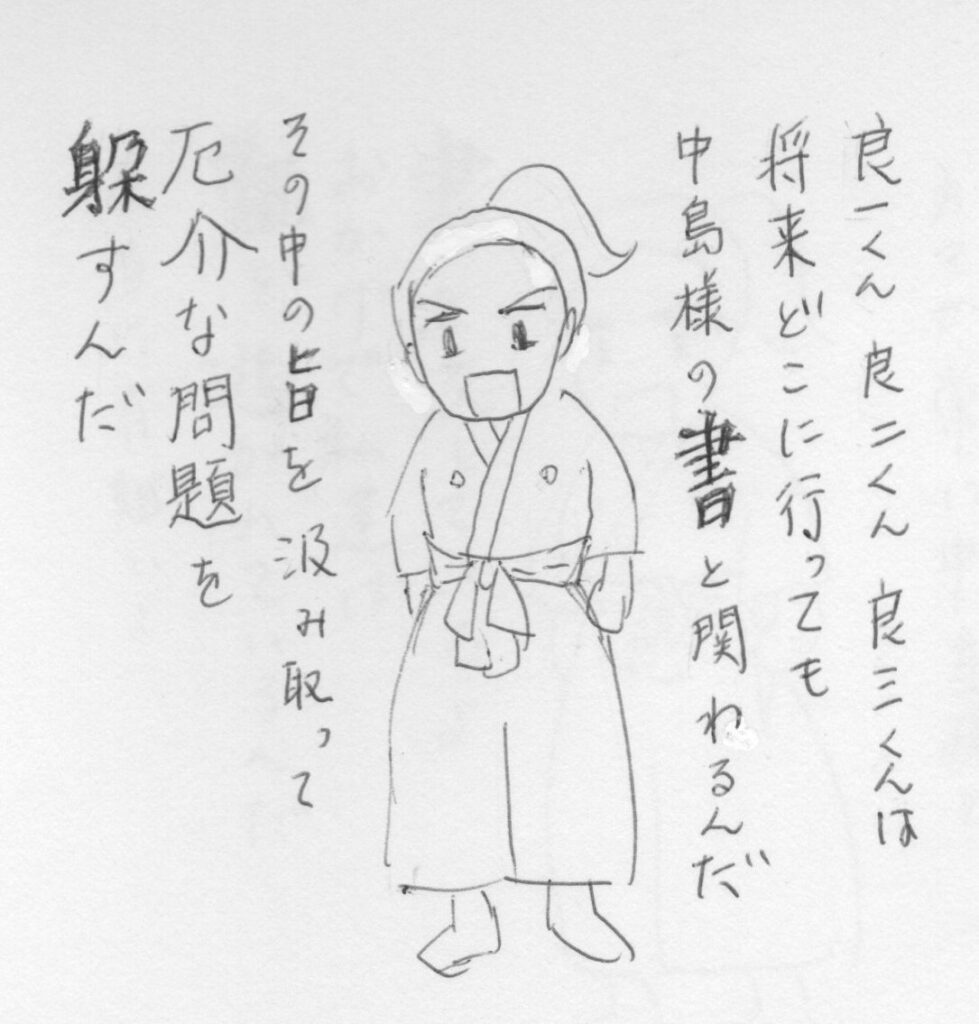 良一くん良二くん良三くんは
将来どこに行っても
中島様の書と関わるんだ
その中の旨を汲み取って
厄介な問題を
躱すんだ